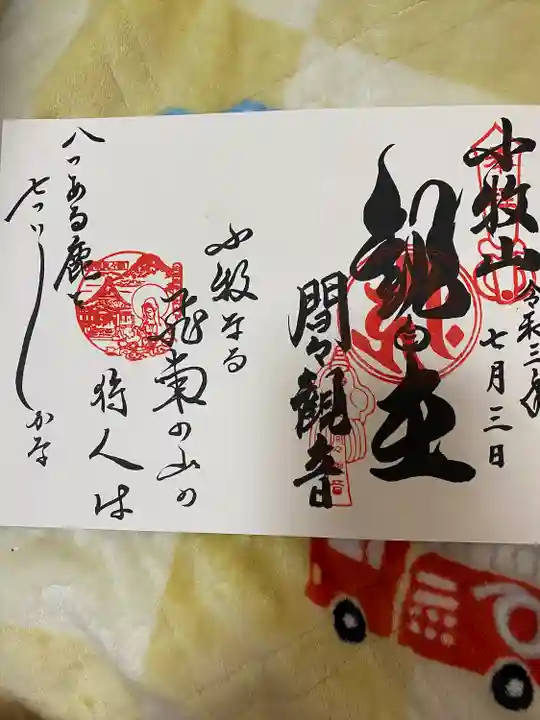 小牧山
令和三年
七月三日
間々観音
小牧なる
飛車の山の
狩人は
八つある鹿を
七ついしかな